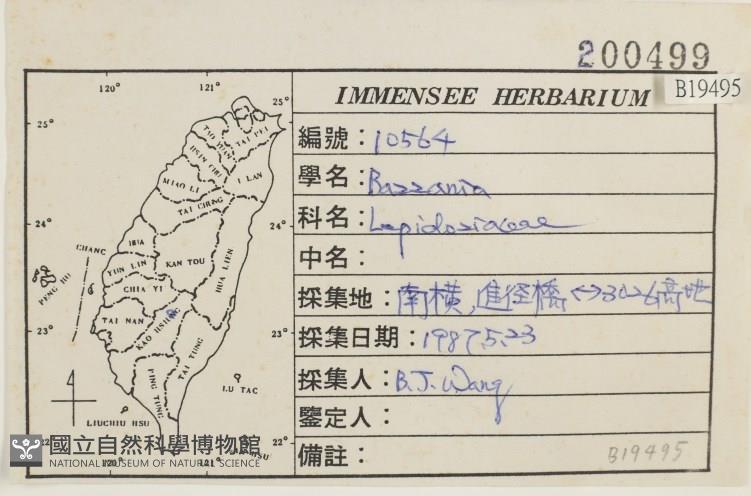 200499
B19495
IMMENSEE HERBARIUM
編號：10564
學名：Bazzania
科名：Lepidoziaceae
中名：
採集地：南橫,進徑橋↔3026高地
採集日期：1987.5.23
採集人：B.J.Wang
鑒定人：
備註：
B19495
120° 121°
25° 25°
TAO YUAN TAI PEI
HSIN CHU
MIAO LI I LAN
TAI CHUNG
24° 24°
CHANG HUA
YUN LIN KAN TOU
HUA LIEN
PENG HU
CHIA YI
TAI NAN
23° 23°
KAO HSIUNG
TAI TUNG
PING TUNG
LU TAC
LIUCHIU HSU
22°
HSU
120° 121°
國立自然科學博物館
NATIONAL MUSEUM OF NATURAL SCIENCE